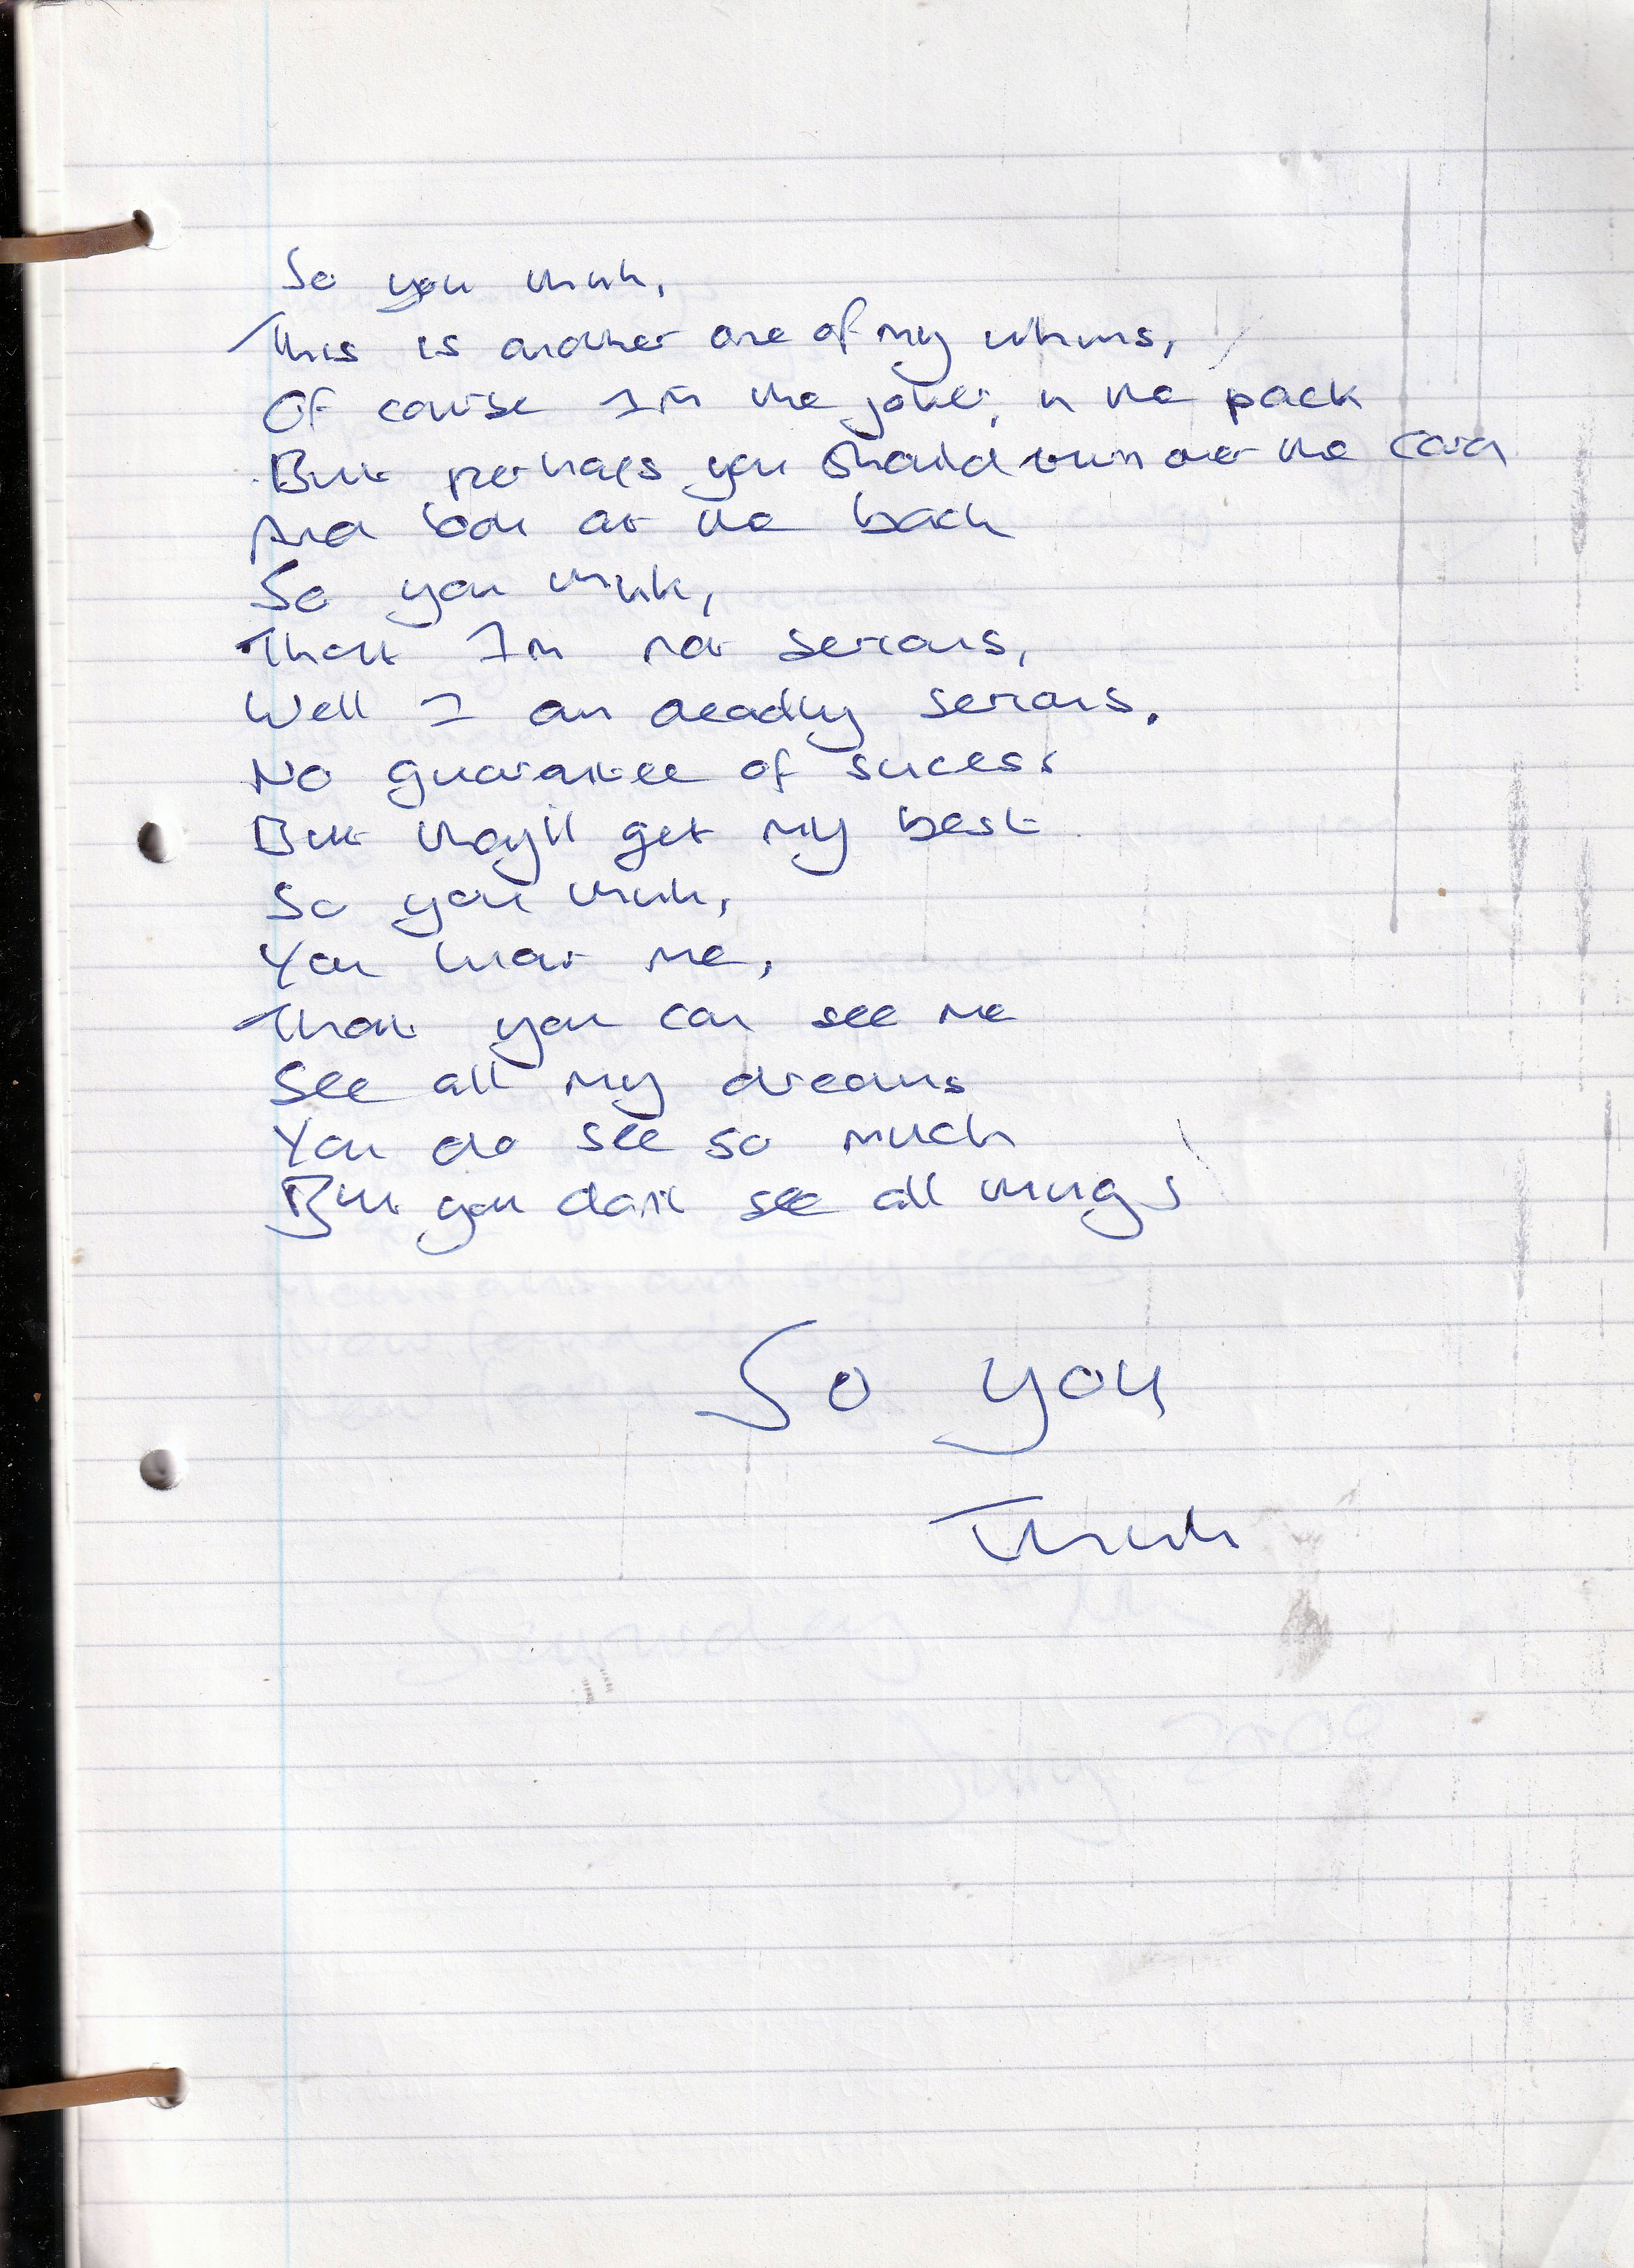 So you think,
This is another one of my whims,
Of course I'm the joker in the pack
But perhaps you should turn over the card
And look at the back
So you think,
That I'm not serious,
Well I am deadly serious.
No guarantee of sucess
But they'll get my best
So you think,
You know me,
That you can see me
See all my dreams
You do see so much
But you don't see all things
So you
Think